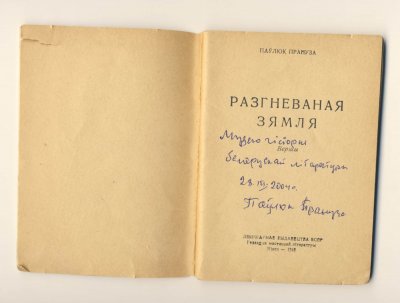 ПАЎЛЮК ПРАНУЗА
РАЗГНЕВАНАЯ
ЗЯМЛЯ
Музею гісторыі
Вершы
беларускай літаратуры
23. III. 2004 г.
Паўлюк Прануза
ДЗЯРЖАЎНАЕ ВЫДАВЕЦТВА БССР
Рэдакцыя мастацкай літаратуры
Мінск —